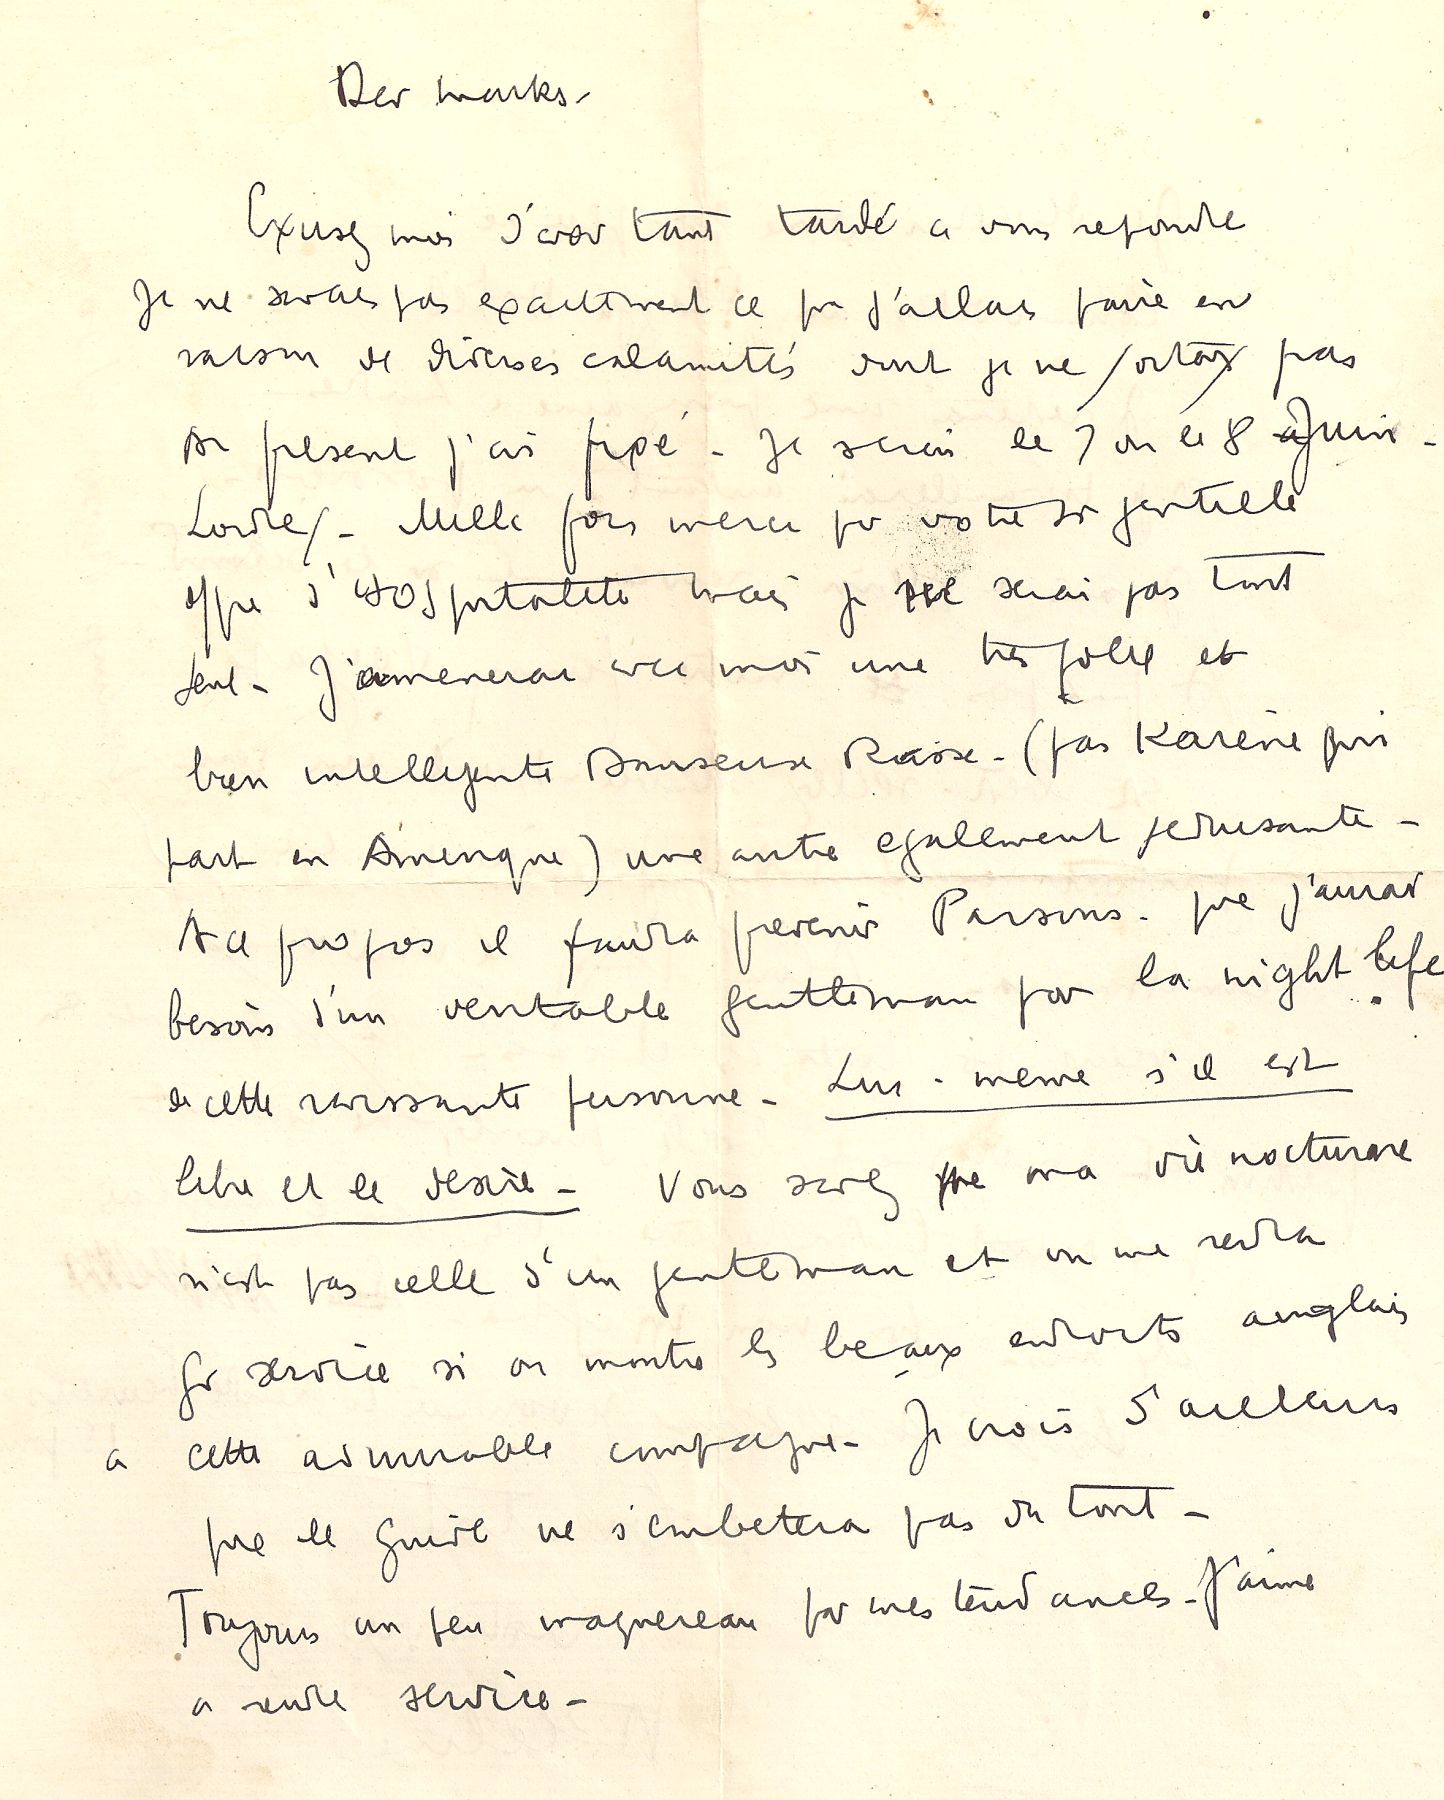 Der marks -
Excusez moi d'avoir tant tardé a vous repondre
Je ne savais pas exactement ce que j'allais faire en
raison de diverses calamités dont je ne sortais pas
De present j'ai pigé - Je serai le 7 ou le 8 Juin -
Londres - Mille fois merci pr votre si gentille
offre d'Hospitalité mais je ne serai pas tout
seul - J'amenerai avec moi une très jolie et
bien intelligente Danseuse Russe - (pas Karène qui
part en Amerique) une autre egalement seduisante -
A ce propos il faudra prevenir Parsons - que j'aurai
besoin d'un veritable gentleman por la night life
de cette ravissante personne - Lui-meme s'il est
libre et le desire - Vous savez que ma vie nocturne
n'est pas celle d'un gentleman et on me rendra
gr service si on montre les beaux endroits anglais
a cette admirable compagne - Je crois d'ailleurs
que le guide ne s'embetera pas du tout -
Toujours un peu maquereau por mes tendances - J'aime
a rendre service -